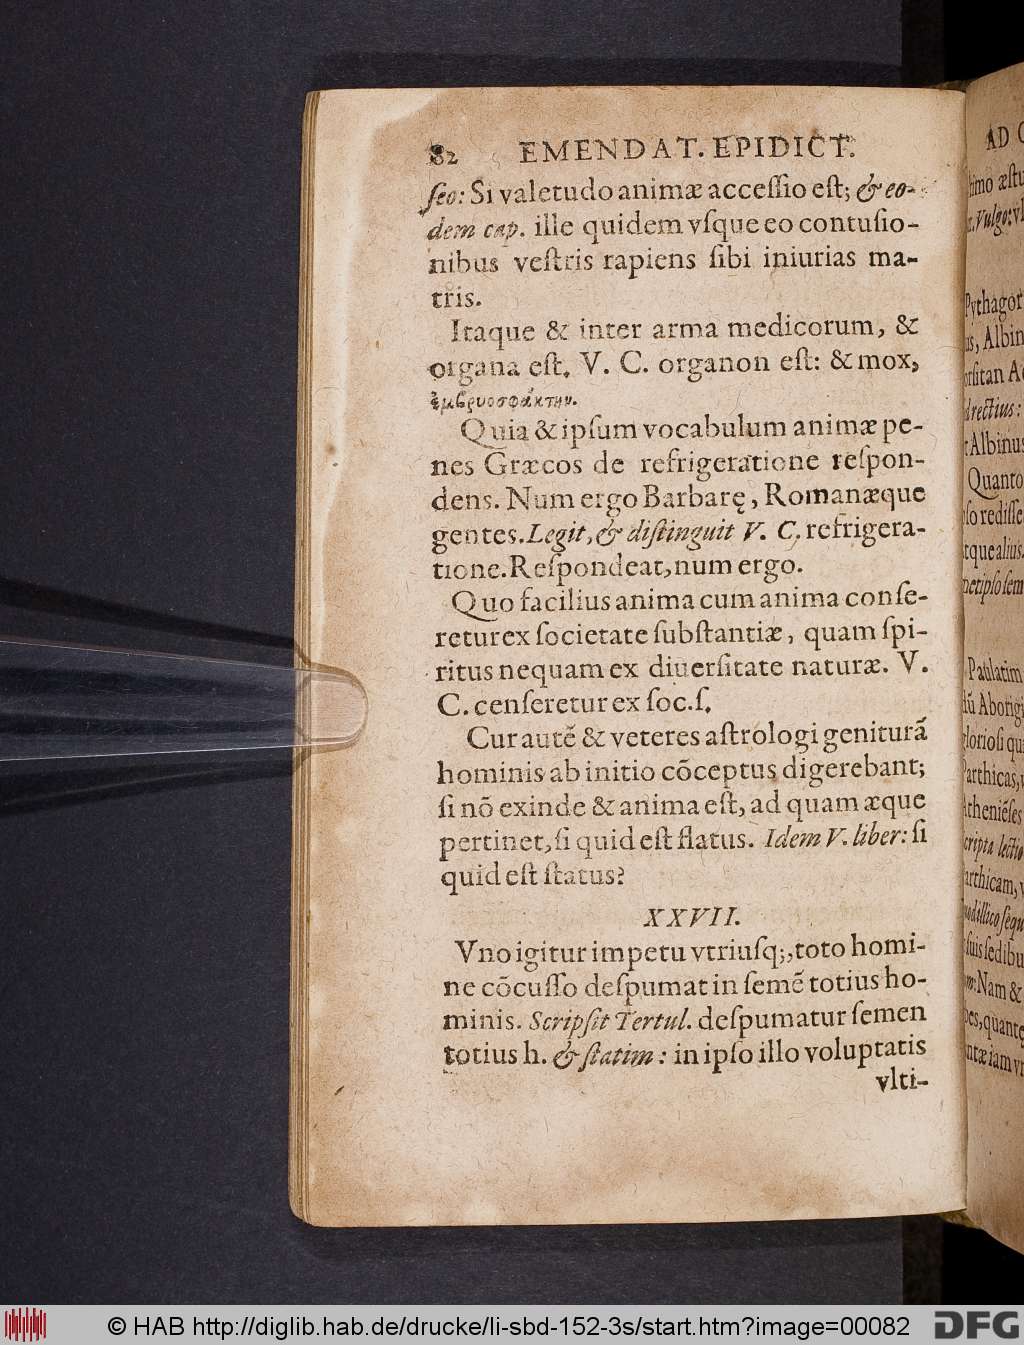 82 EMENDAT. EPIDICT.
ſeo: Si valetudo animæ acceſſio eſt; & eo-
dem cap. ille quidem vſque eo contuſio-
nibus veſtris rapiens ſibi iniurias ma-
tris.
Itaque & inter arma medicorum, &
organa eſt. V. C. organon eſt: & mox,
ἐμβρυοσφάκτην.
Quia & ipſum vocabulum animæ pe-
nes Græcos de refrigeratione reſpon-
dens. Num ergo Barbarę, Romanæque
gentes. Legit, & diſtinguit V. C. refrigera-
tione. Reſpondeat, num ergo.
Quo facilius anima cum anima conſe-
retur ex ſocietate ſubſtantiæ, quam ſpi-
ritus nequam ex diuerſitate naturæ. V.
C. cenſeretur ex ſoc. ſ.
Cur autē & veteres aſtrologi geniturā
hominis ab initio cōceptus digerebant;
ſi nō exinde & anima eſt, ad quam æque
pertinet, ſi quid eſt flatus. Idem V. liber: ſi
quid eſt ſtatus?
XXVII.
Vno igitur impetu vtriuſq;, toto homi-
ne cōcuſſo deſpumat in ſemē totius ho-
minis. Scripſit Tertul. deſpumatur ſemen
totius h. & ſtatim: in ipſo illo voluptatis
vlti-
AD
timo æſtu
Vulgo:
Pythagor
us, Albin
directius:
t Albinus
Quanto
ſo rediſſe
tque alius.
Paulatim
Aborigi
glorioſi qui
Parthicas,
Atheniēſes
ſcripta lectio
arthicam,
ſuis ſedibu
Nam &
pes, quantę
© HAB http://diglib.hab.de/drucke/li-sbd-152-3s/start.htm?image=00082
DFG